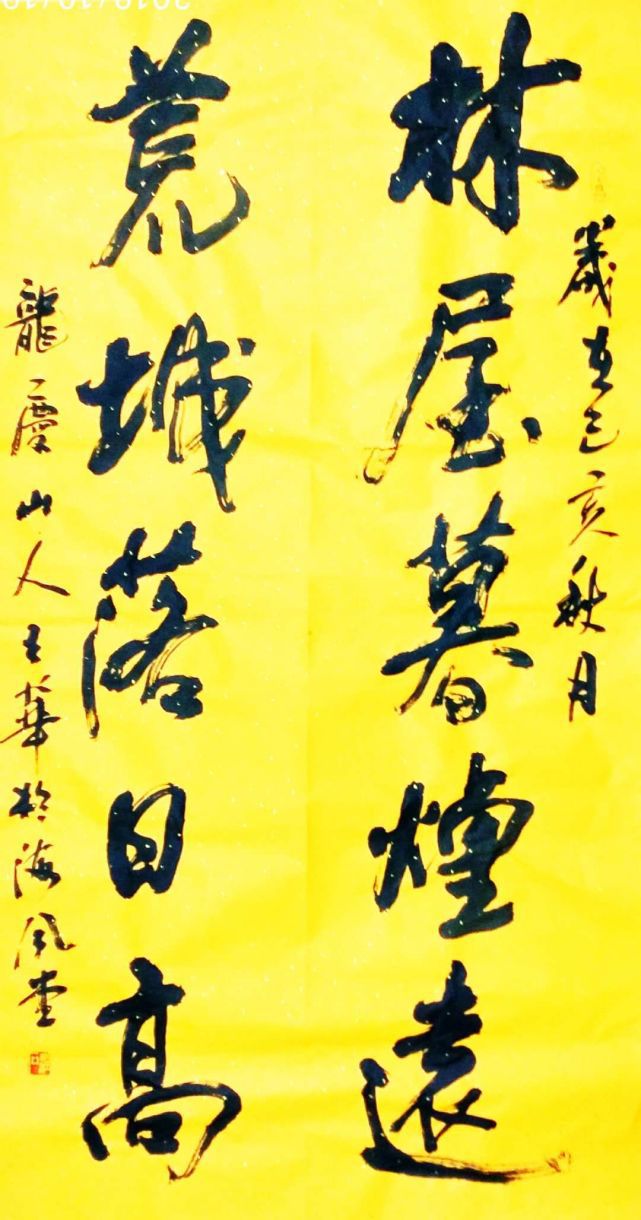 歲在己亥秋月
林屋暮煙遠
荒城落日高
龍慶山人王華於海風堂